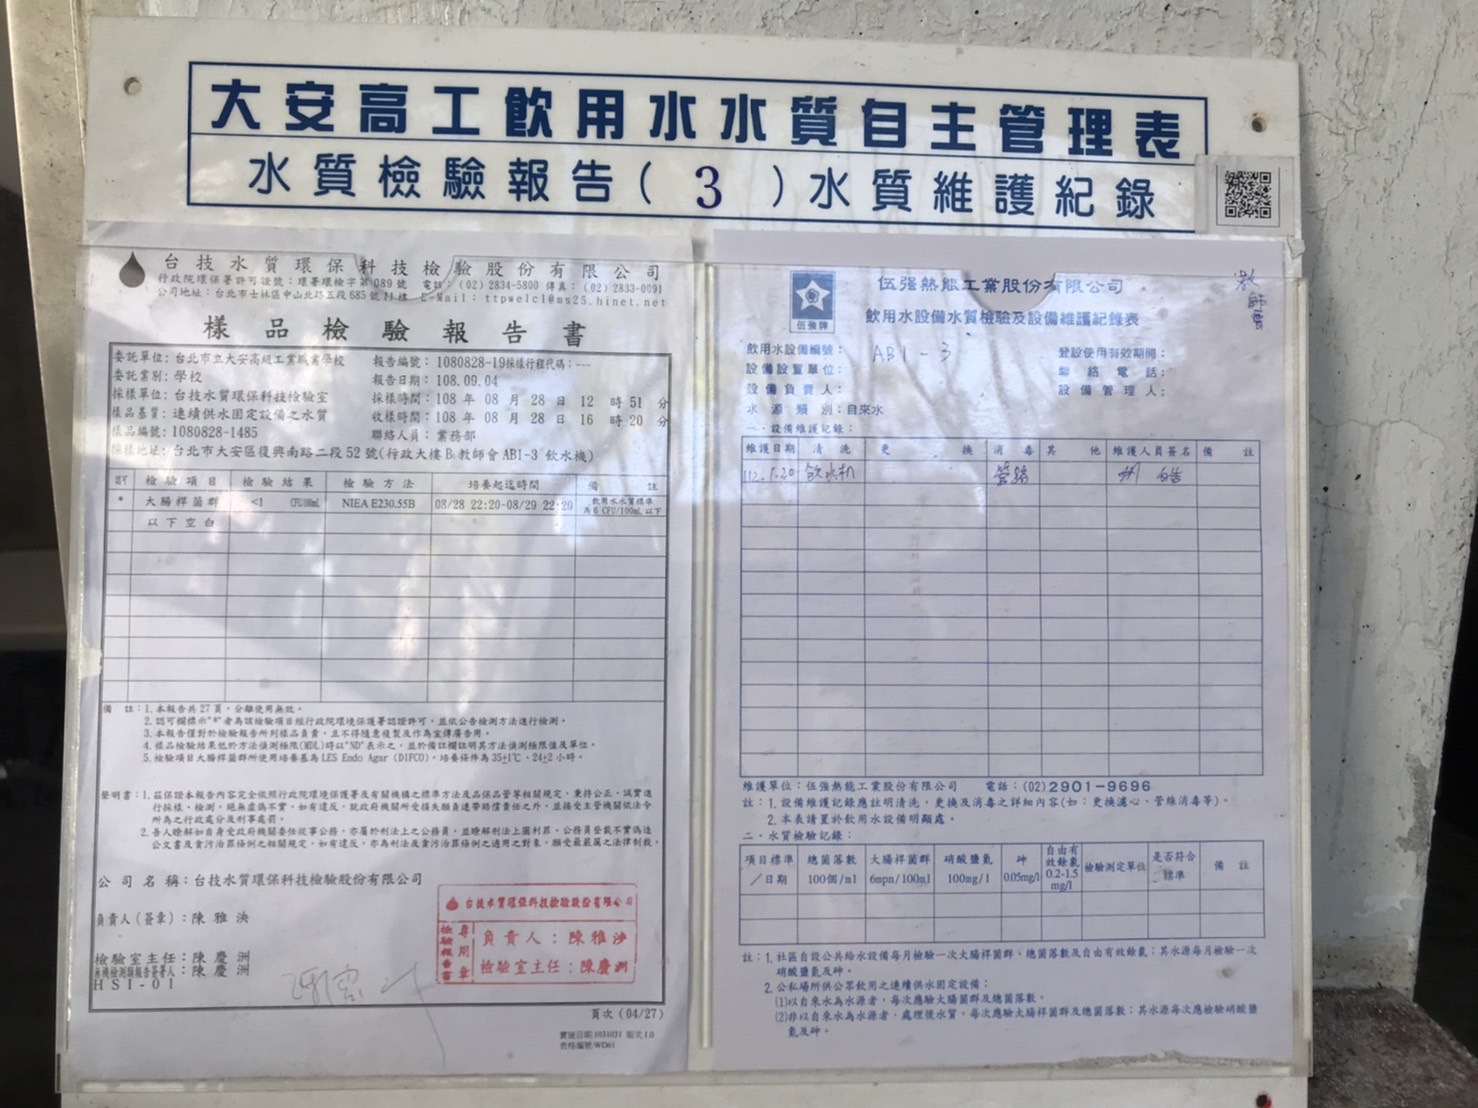 大安高工飲用水水質自主管理表
水質檢驗報告(3)水質維護紀錄
台技水質環保科技檢驗股份有限公司
行政院環保署許可證號：環署環檢字第089號 電話：(02)2834-5800 傳真：(02)2833-0091
公司地址：台北市士林區中山北路五段685號11樓 E-Mail：ttpwelcl@ms25.hinet.net
樣品檢驗報告書
委託單位：台北市立大安高級工業職業學校 報告編號：1080828-19採樣行程代碼：---
委託業別：學校 報告日期：108.09.04
採樣單位：台技水質環保科技檢驗室 採樣時間：108 年 08 月 28 日 12 時 51 分
樣品基質：連續供水固定設備之水質 收樣時間：108 年 08 月 28 日 16 時 20 分
樣品編號：1080828-1485 聯絡人員：業務部
採樣地址：台北市大安區復興南路二段52號(行政大樓B 教師會 AB1-3 飲水機)
檢驗項目 檢驗結果 檢驗方法 培養起迄時間 備註
* 大腸桿菌群 <1 CFU/100mL NIEA E230.55B 08/28 22:20-08/29 22:20 飲用水水質標準
為6 CFU/100mL以下
以下空白
備 註：1.本報告共27頁，分離使用無效。
2.認可欄標示"*"者為該檢驗項目經行政院環境保護署認證許可，並依公告檢測方法進行檢測。
3.本報告僅對於檢驗報告所列樣品負責，且不得隨意複製及作為宣傳廣告用。
4.樣品檢驗結果低於方法偵測極限(MDL)時以"ND"表示之，並於備註欄註明其方法偵測極限值及單位。
5.檢驗項目大腸桿菌群所使用培養基為LES Endo Agar (DIFCO)，培養條件為35±1℃、24±2小時。
聲明書：1.茲保證本報告內容完全依照行政院環境保護署及有關機構之標準方法及品保品管等相關規定，秉持公正、誠實進
行採樣、檢測，絕無虛偽不實，如有違反，就政府機關所受損失願負連帶賠償責任之外，並接受主管機關依法令
所為之行政處分及刑事處罰。
2.吾人瞭解如自身受政府機關委任從事公務，亦屬於刑法上之公務員，並瞭解刑法上圖利罪、公務員登載不實偽造
公文書及貪污治罪條例之相關規定，如有違反，亦為刑法及貪污治罪條例之適用之對象，願受最嚴厲之法律制裁。
公司名稱：台技水質環保科技檢驗股份有限公司
負責人(簽章)：陳雅泱
檢驗室主任：陳慶洲
無機檢測類報告簽署人：陳慶洲
HSI-01
台技水質環保科技檢驗股份有限公司
檢驗報告書
專用章
負責人：陳雅泱
檢驗室主任：陳慶洲
頁次(04/27)
實施日期:1031031 版次1.0
表格編號:WD61
教師會
伍強牌
伍強熱能工業股份有限公司
飲用水設備水質檢驗及設備維護紀錄表
飲用水設備編號：AB1-3 登設使用有效期間：
設備設置單位： 聯絡電話：
設備負責人： 設備管理人：
水源類別：自來水
一、設備維護記錄：
維護日期 清洗 更換 消毒 其他 維護人員簽名 備註
112.1.20 飲水机 管路
維護單位：伍強熱能工業股份有限公司 電話：(02)2901-9696
註：1.設備維護記錄應註明清洗，更換及消毒之詳細內容(如：更換濾心、管線消毒等)。
2.本表請置於飲用水設備明顯處。
二、水質檢驗記錄：
項目標準／日期 總菌落數100個/ml 大腸桿菌群6mpn/100ml 硝酸鹽氮100mg/l 砷0.05mg/l 自由有效餘氯0.2-1.5mg/l 檢驗測定單位 是否符合標準 備註
註：1.社區自設公共給水設備每月檢驗一次大腸桿菌群、總菌落數及自由有效餘氯；其水源每月檢驗一次
硝酸鹽氮及砷。
2.公私場所供公眾飲用之連續供水固定設備：
(1)以自來水為水源者，每次應驗大腸菌群及總菌落數。
(2)非以自來水為水源者，處理後水質，每次應驗大腸桿菌群及總菌落數；其水源每次應檢驗硝酸鹽
氮及砷。